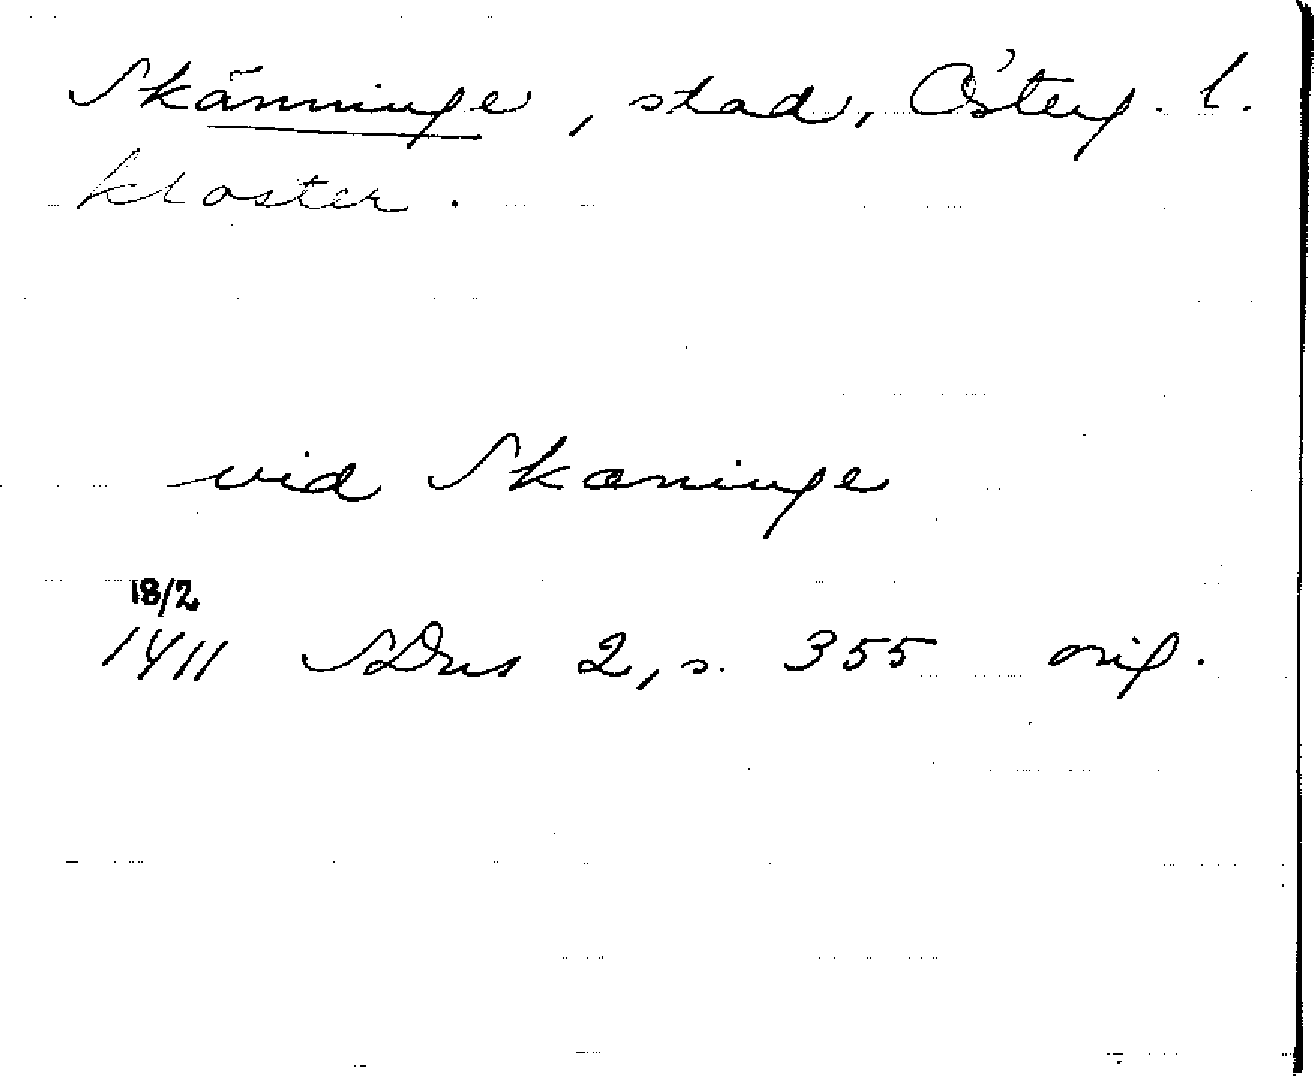 Skänninge, stad, Österg. l.
kloster.
vid Skæninge
18/2
1411 SDns 2, s. 355 orig.